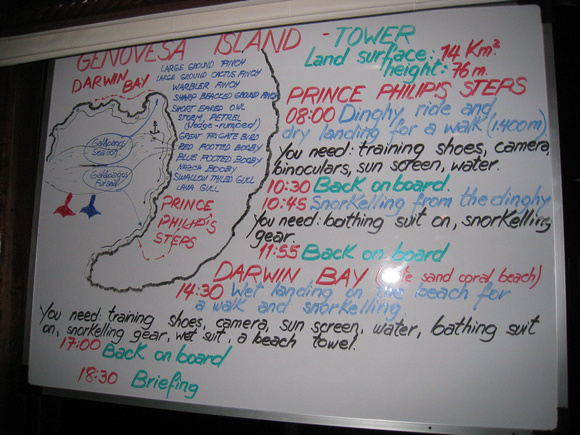 GENOVESA ISLAND - TOWER
Land surface: 14 Km²
height: 76 m.
DARWIN BAY
LARGE GROUND FINCH
LARGE GROUND CACTUS FINCH
WARBLER FINCH
SHARP BEACKED GROUND FINCH
SHORT EARED OWL
STORM, PETREL
(Wedge-rumped)
GREAT FRIGATE BIRD
RED FOOTED BOOBY
BLUE FOOTED BOOBY
NAZCA BOOBY
SWALLOW TAILED GULL
LAVA GULL
Galapagos
Sea lion
Galapagos
Fur seal
PRINCE
PHILIP'S
STEPS
PRINCE PHILIP'S STEPS
08:00 Dinghy ride and
dry landing for a walk (1400m).
You need: training shoes, camera,
binoculars, sun screen, water.
10:30 Back on board.
10:45 Snorkelling from the dinghy
You need: bathing suit on, snorkelling
gear.
11:55 Back on board
DARWIN BAY sand coral beach)
14:30 Wet landing on beach for
a walk and snorkelling.
You need: training shoes, camera, sun screen, water, bathing suit
on, snorkelling gear, wet suit, a beach towel.
17:00 Back on board
18:30 Briefing